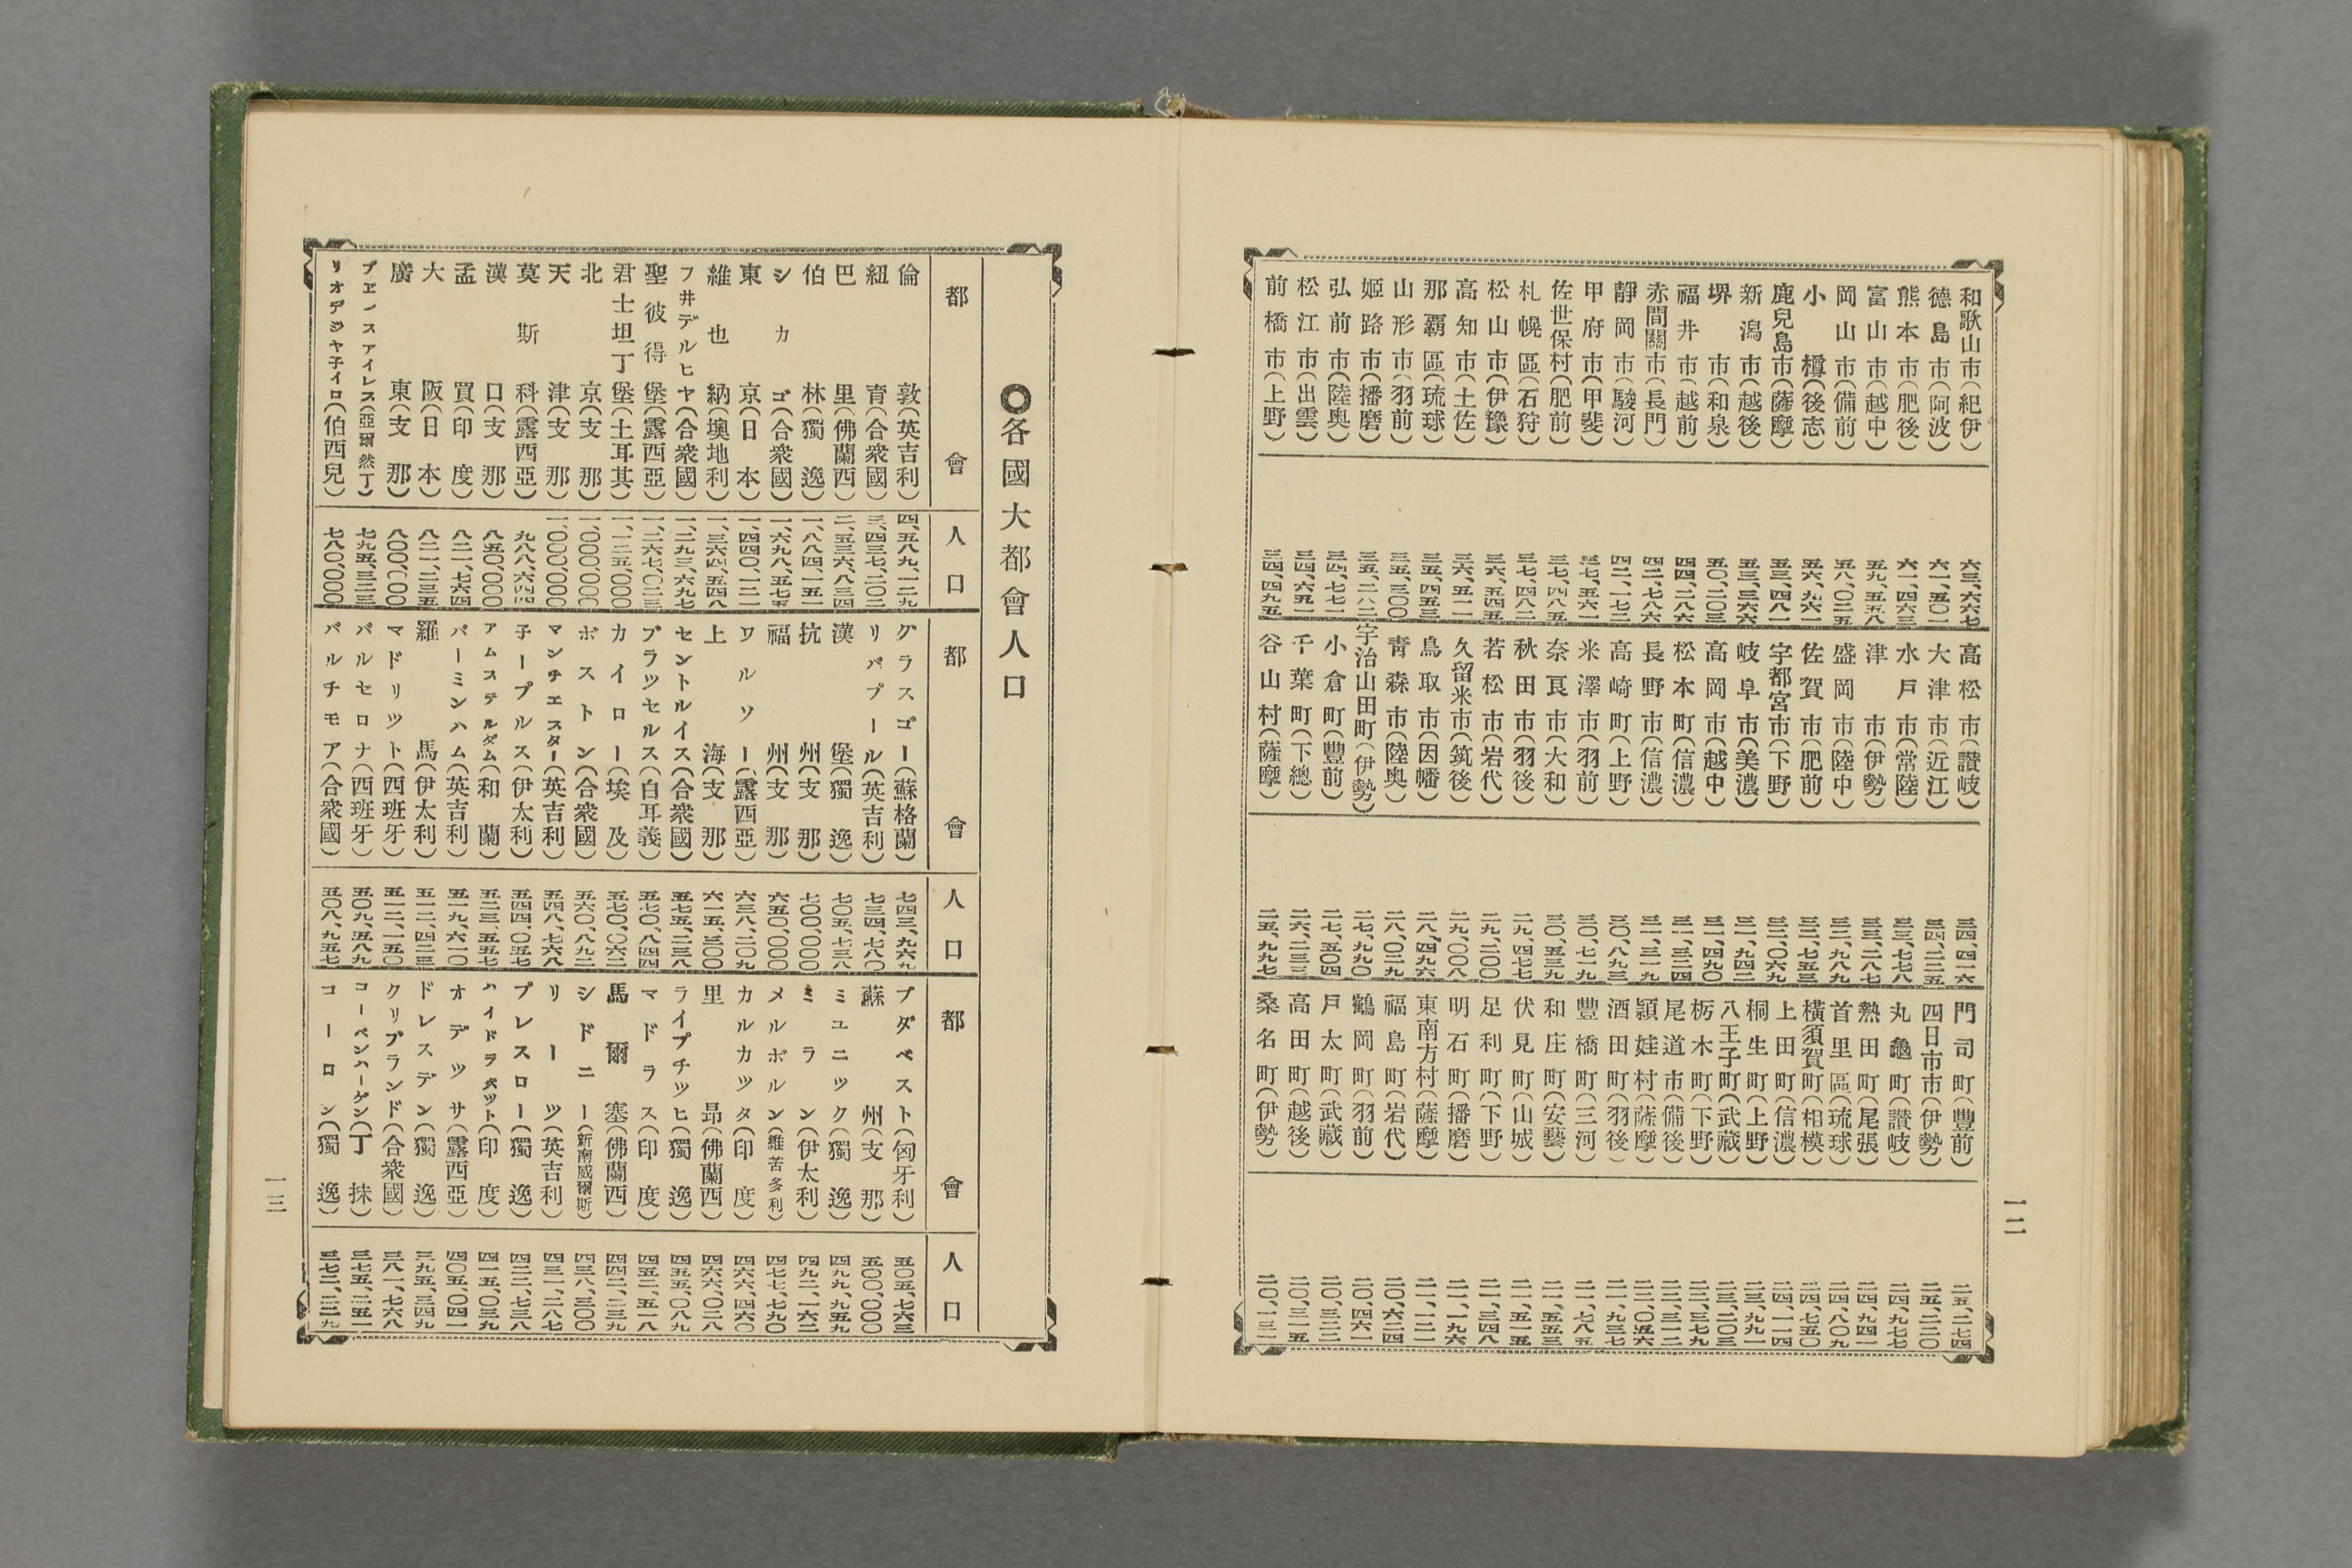 一二
和歌山市(紀伊) 六三、六六七
德島市(阿波) 六一、五〇一
熊本市(肥後) 六一、四六三
富山市(越中) 五九、五五八
岡山市(備前) 五八、〇二五
小樽(後志) 五六、九六一
鹿兒島市(薩摩) 五三、四八一
新潟市(越後) 五三、三六六
堺市(和泉) 五〇、二〇三
福井市(越前) 四四、二八六
赤間關市(長門) 四二、七八六
靜岡市(駿河) 四二、一七二
甲府市(甲斐) 三七、五六一
佐世保村(肥前) 三七、四八五
札幌區(石狩) 三七、四八二
松山市(伊豫) 三六、五四五
高知市(土佐) 三六、五一一
那覇區(琉球) 三五、四五三
山形市(羽前) 三五、三〇〇
姬路市(播磨) 三五、二八二
弘前市(陸奥) 三四、七七一
松江市(出雲) 三四、六五一
前橋市(上野) 三四、四九五
高松市(讃岐) 三四、四一六
大津市(近江) 三四、二二五
水戸市(常陸) 三三、七七八
津市(伊勢) 三三、二八七
盛岡市(陸中) 三二、九八九
佐賀市(肥前) 三二、七五三
宇都宮市(下野) 三二、〇六九
岐阜市(美濃) 三一、九四二
高岡市(越中) 三一、四九〇
松本町(信濃) 三一、三二四
長野市(信濃) 三一、三一九
高崎町(上野) 三〇、八九三
米澤市(羽前) 三〇、七一九
奈良市(大和) 三〇、五三九
秋田市(羽後) 二九、四七七
若松市(岩代) 二九、二〇〇
久留米市(筑後) 二九、〇〇八
鳥取市(因幡) 二八、四九六
青森市(陸奥) 二八、〇二九
宇治山田町(伊勢) 二七、九九〇
小倉町(豐前) 二七、五〇四
千葉町(下總) 二六、二三三
谷山村(薩摩) 二五、九九七
門司町(豐前) 二五、二七四
四日市市(伊勢) 二五、二二〇
丸龜町(讃岐) 二四、九七七
熱田町(尾張) 二四、九四一
首里區(琉球) 二四、八〇九
橫須賀町(相模) 二四、七五〇
上田町(信濃) 二四、一一四
桐生町(上野) 二三、九九一
八王子町(武藏) 二三、二〇三
栃木町(下野) 二二、三七九
尾道市(備後) 二二、三一二
頴娃村(薩摩) 二二、〇五六
酒田町(羽後) 二一、九三七
豐橋町(三河) 二一、七八五
和庄町(安藝) 二一、五五三
伏見町(山城) 二一、五一五
足利町(下野) 二一、三四八
明石町(播磨) 二一、一九六
東南方村(薩摩) 二一、一二一
福島町(岩代) 二〇、六二四
鶴岡町(羽前) 二〇、四六一
戸太町(武藏) 二〇、三二二
高田町(越後) 二〇、三一五
桑名町(伊勢) 二〇、一三一
◎各國大都會人口
都會 人口
倫敦(英吉利) 四、五八九、一二九
紐育(合衆國) 三、四三七、二〇二
巴里(佛蘭西) 二、五三六、八三四
伯林(獨逸) 一、八八四、一五一
シカゴ(合衆國) 一、六九八、五七五
東京(日本) 一、四四〇、一二一
維也納(墺地利) 一、三六四、五四八
フ井デルヒヤ(合衆國) 一、二九三、六九七
聖彼得堡(露西亞) 一、二六七、〇二三
君士坦丁堡(土耳其) 一、一二五、〇〇〇
北京(支那) 一、〇〇〇、〇〇〇
天津(支那) 一、〇〇〇、〇〇〇
莫斯科(露西亞) 九八八、六四四
漢口(支那) 八五〇、〇〇〇
孟買(印度) 八二一、七六四
大阪(日本) 八二一、二三五
廣東(支那) 八〇〇、〇〇〇
ブエンスアイレス(亞爾然丁) 七九五、三二三
リオデジヤ子イロ(伯西兒) 七八〇、〇〇〇
都會 人口
グラスゴー(蘇格蘭) 七四三、九六九
リバプール(英吉利) 七三四、七八〇
漢堡(獨逸) 七〇五、七三八
抗州(支那) 七〇〇、〇〇〇
福州(支那) 六五〇、〇〇〇
ワルソー(露西亞) 六三八、二〇九
上海(支那) 六一五、三〇〇
セントルイス(合衆國) 五七五、二三八
ブラツセルス(白耳義) 五七〇、八四四
カイロー(埃及) 五七〇、〇六二
ボストン(合衆國) 五六〇、八九二
マンチエスター(英吉利) 五四八、七六八
子ープルス(伊太利) 五四四、〇五七
アムステルダム(和蘭) 五二三、五五七
バーミンハム(英吉利) 五一九、六一〇
羅馬(伊太利) 五一二、四二三
マドリツト(西班牙) 五一二、一五〇
バルセロナ(西班牙) 五〇九、五八九
バルチモア(合衆國) 五〇八、九五七
都會 人口
ブダペスト(匈牙利) 五〇五、七六三
蘇州(支那) 五〇〇、〇〇〇
ミユニツク(獨逸) 四九九、九五九
ミラン(伊太利) 四九二、一六二
メルボルン(維苦多利) 四七七、七九〇
カルカツタ(印度) 四六六、四六〇
里昂(佛蘭西) 四六六、〇二八
ライプチツヒ(獨逸) 四五五、〇八九
マドラス(印度) 四五二、五一八
馬爾塞(佛蘭西) 四四二、二三九
シドニー(新南威爾斯) 四三八、三〇〇
リーツ(英吉利) 四三一、二八七
ブレスロー(獨逸) 四二二、七三八
ハイドラバツト(印度) 四一五、〇三九
オデツサ(露西亞) 四〇五、〇四一
ドレスデン(獨逸) 三九五、三四九
クリブランド(合衆國) 三八一、七六八
コーペンハーゲン(丁抹) 三七五、二五一
コーロン(獨逸) 三七二、二二九
一三